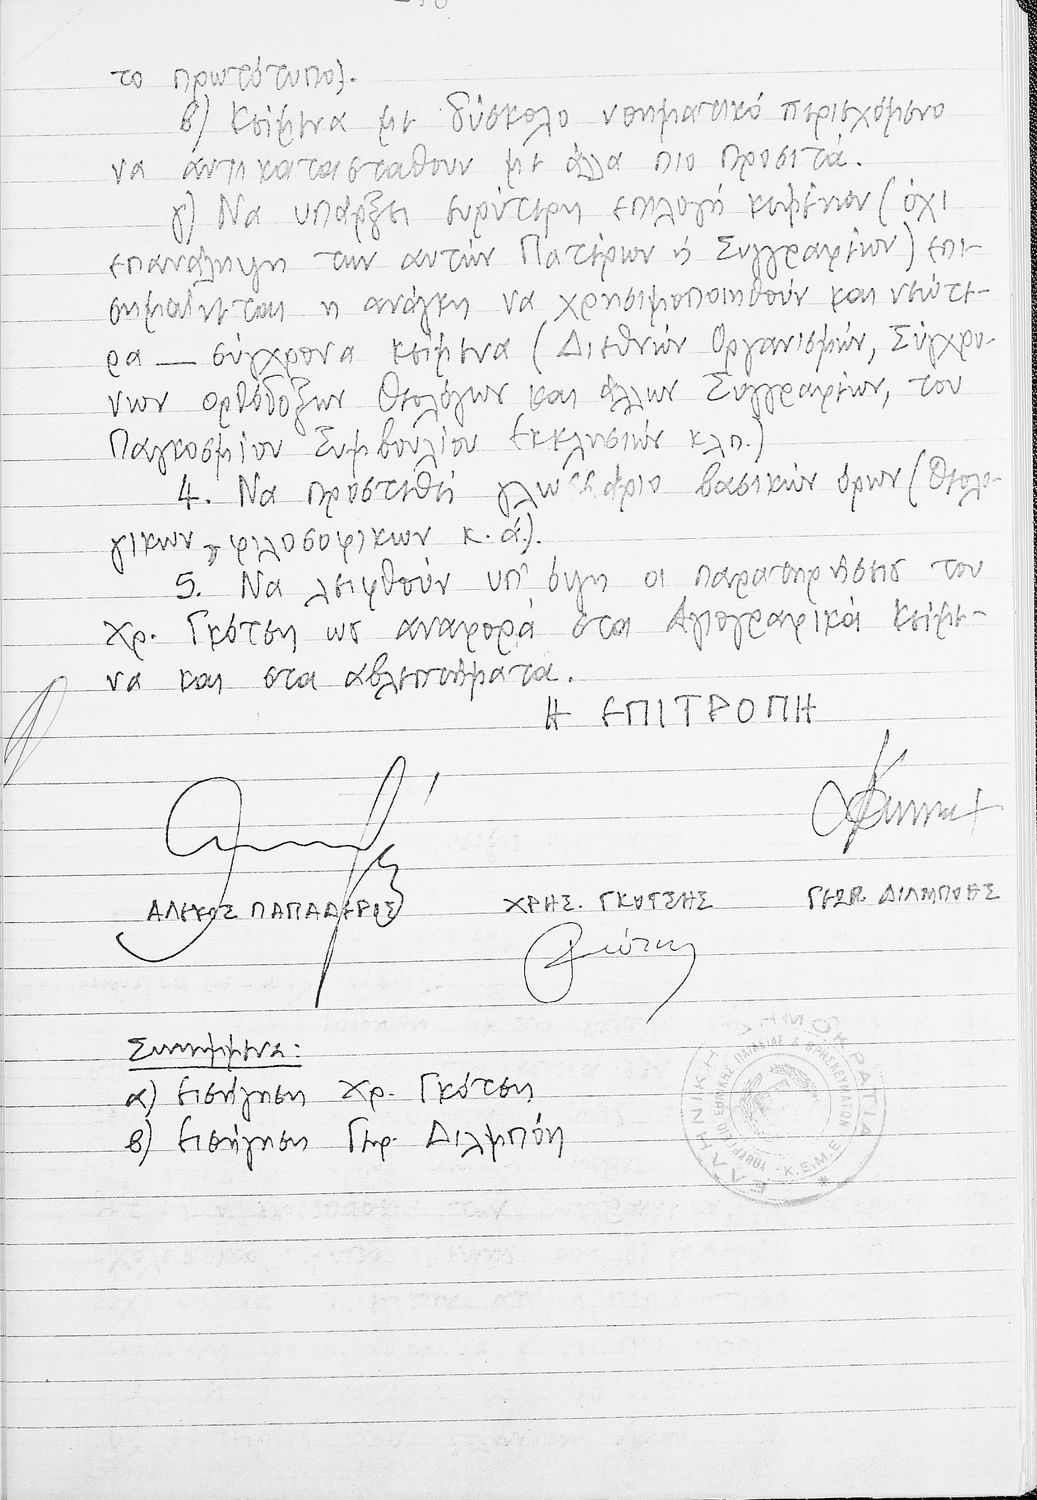 το πρωτότυπο).
β) Κείμενα με δύσκολο νοηματικό περιεχόμενο
να αντικατασταθούν με άλλα πιο προσιτά.
γ) Να υπάρξει ευρύτερη επιλογή κειμένων (όχι
επανάληψη των αυτών Πατέρων ή Συγγραφέων) Επι-
σημαίνεται η ανάγκη να χρησιμοποιηθούν και νεώτε-
ρα — σύγχρονα κείμενα (Διεθνών Οργανισμών, Σύγχρο-
νων ορθόδοξων θεολόγων και άλλων Συγγραφέων, του
Παγκοσμίου Συμβουλίου Εκκλησιών κλπ.)
4. Να προστεθή γλωσσάριο βασικών όρων (θεολο-
γικών, φιλοσοφικών κ.ά.).
5. Να λειφθούν υπ' όψη οι παρατηρήσεις του
Χρ. Γκότση ως αναφορά στα Αγιογραφικά κείμε-
να και στα αβλεπτήματα.
Η ΕΠΙΤΡΟΠΗ
ΑΛΕΚΟΣ ΠΑΠΑΔΕΡΟΣ ΧΡΗΣ. ΓΚΟΤΣΗΣ ΓΕΩΡ. ΔΙΛΜΠΟΗΣ
Συνημμένα:
α) Εισήγηση Χρ. Γκότση
β) Εισήγηση Γεωρ. Διλμπόη
ΕΛΛΗΝΙΚΗ ΔΗΜΟΚΡΑΤΙΑ
ΥΠΟΥΡΓΕΙΟ ΕΘΝΙΚΗΣ ΠΑΙΔΕΙΑΣ & ΘΡΗΣΚΕΥΜΑΤΩΝ
Κ.Ε.Μ.Ε